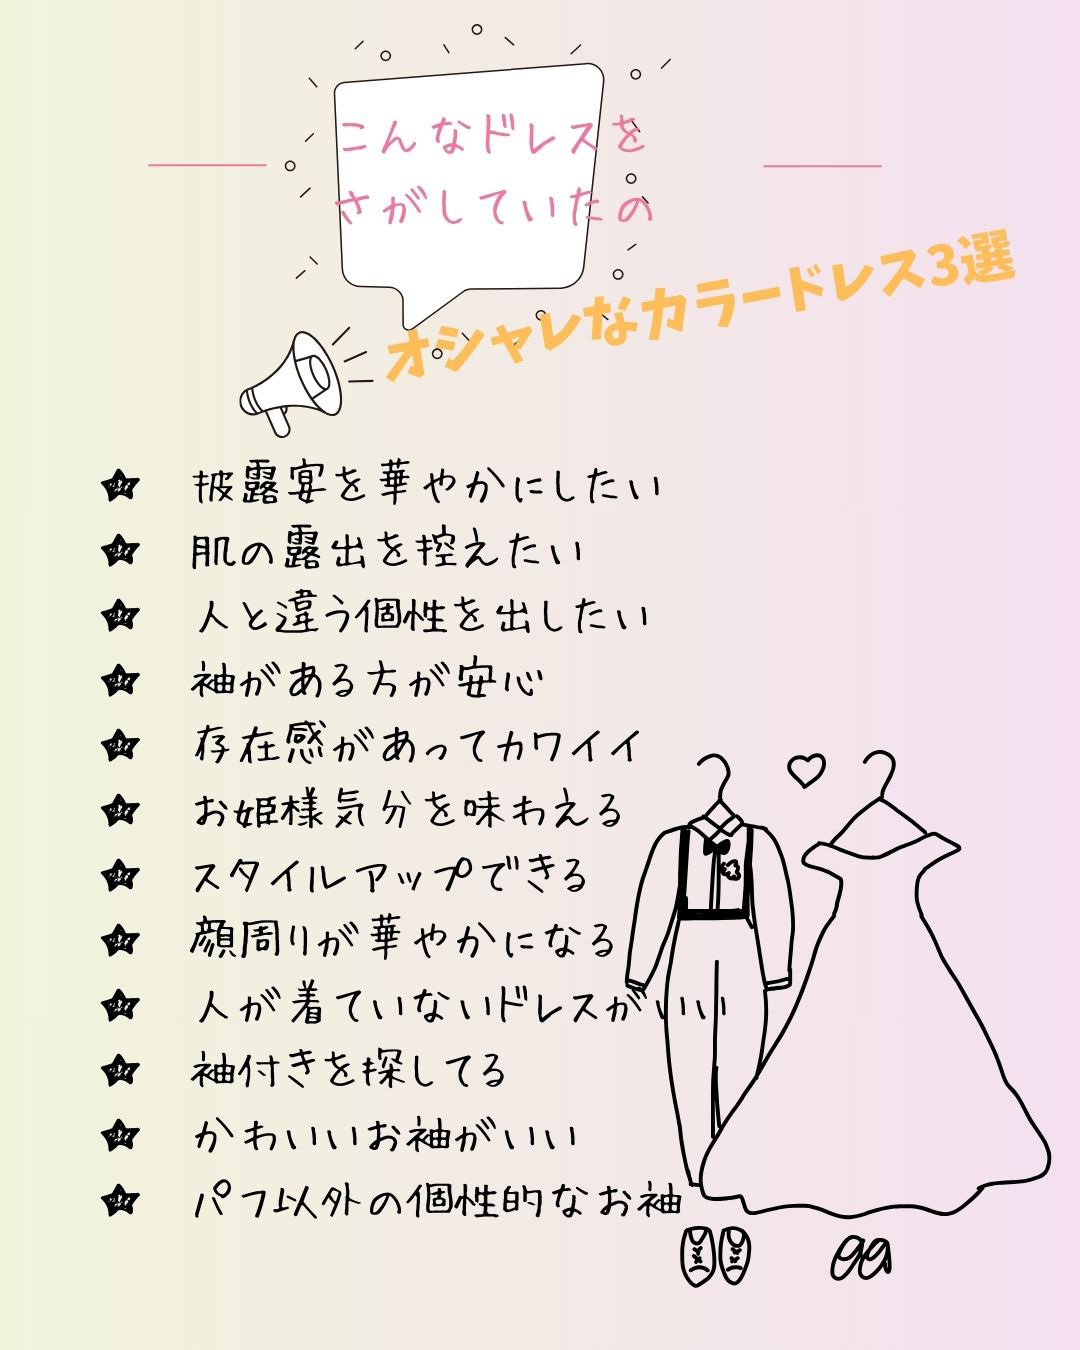 こんなドレスを
さがしていたの
オシャレなカラードレス3選
披露宴を華やかにしたい
肌の露出を控えたい
人と違う個性を出したい
袖がある方が安心
存在感があってカワイイ
お姫様気分を味わえる
スタイルアップできる
顔周りが華やかになる
人が着ていないドレスがいい
袖付きを探してる
かわいいお袖がいい
パフ以外の個性的なお袖